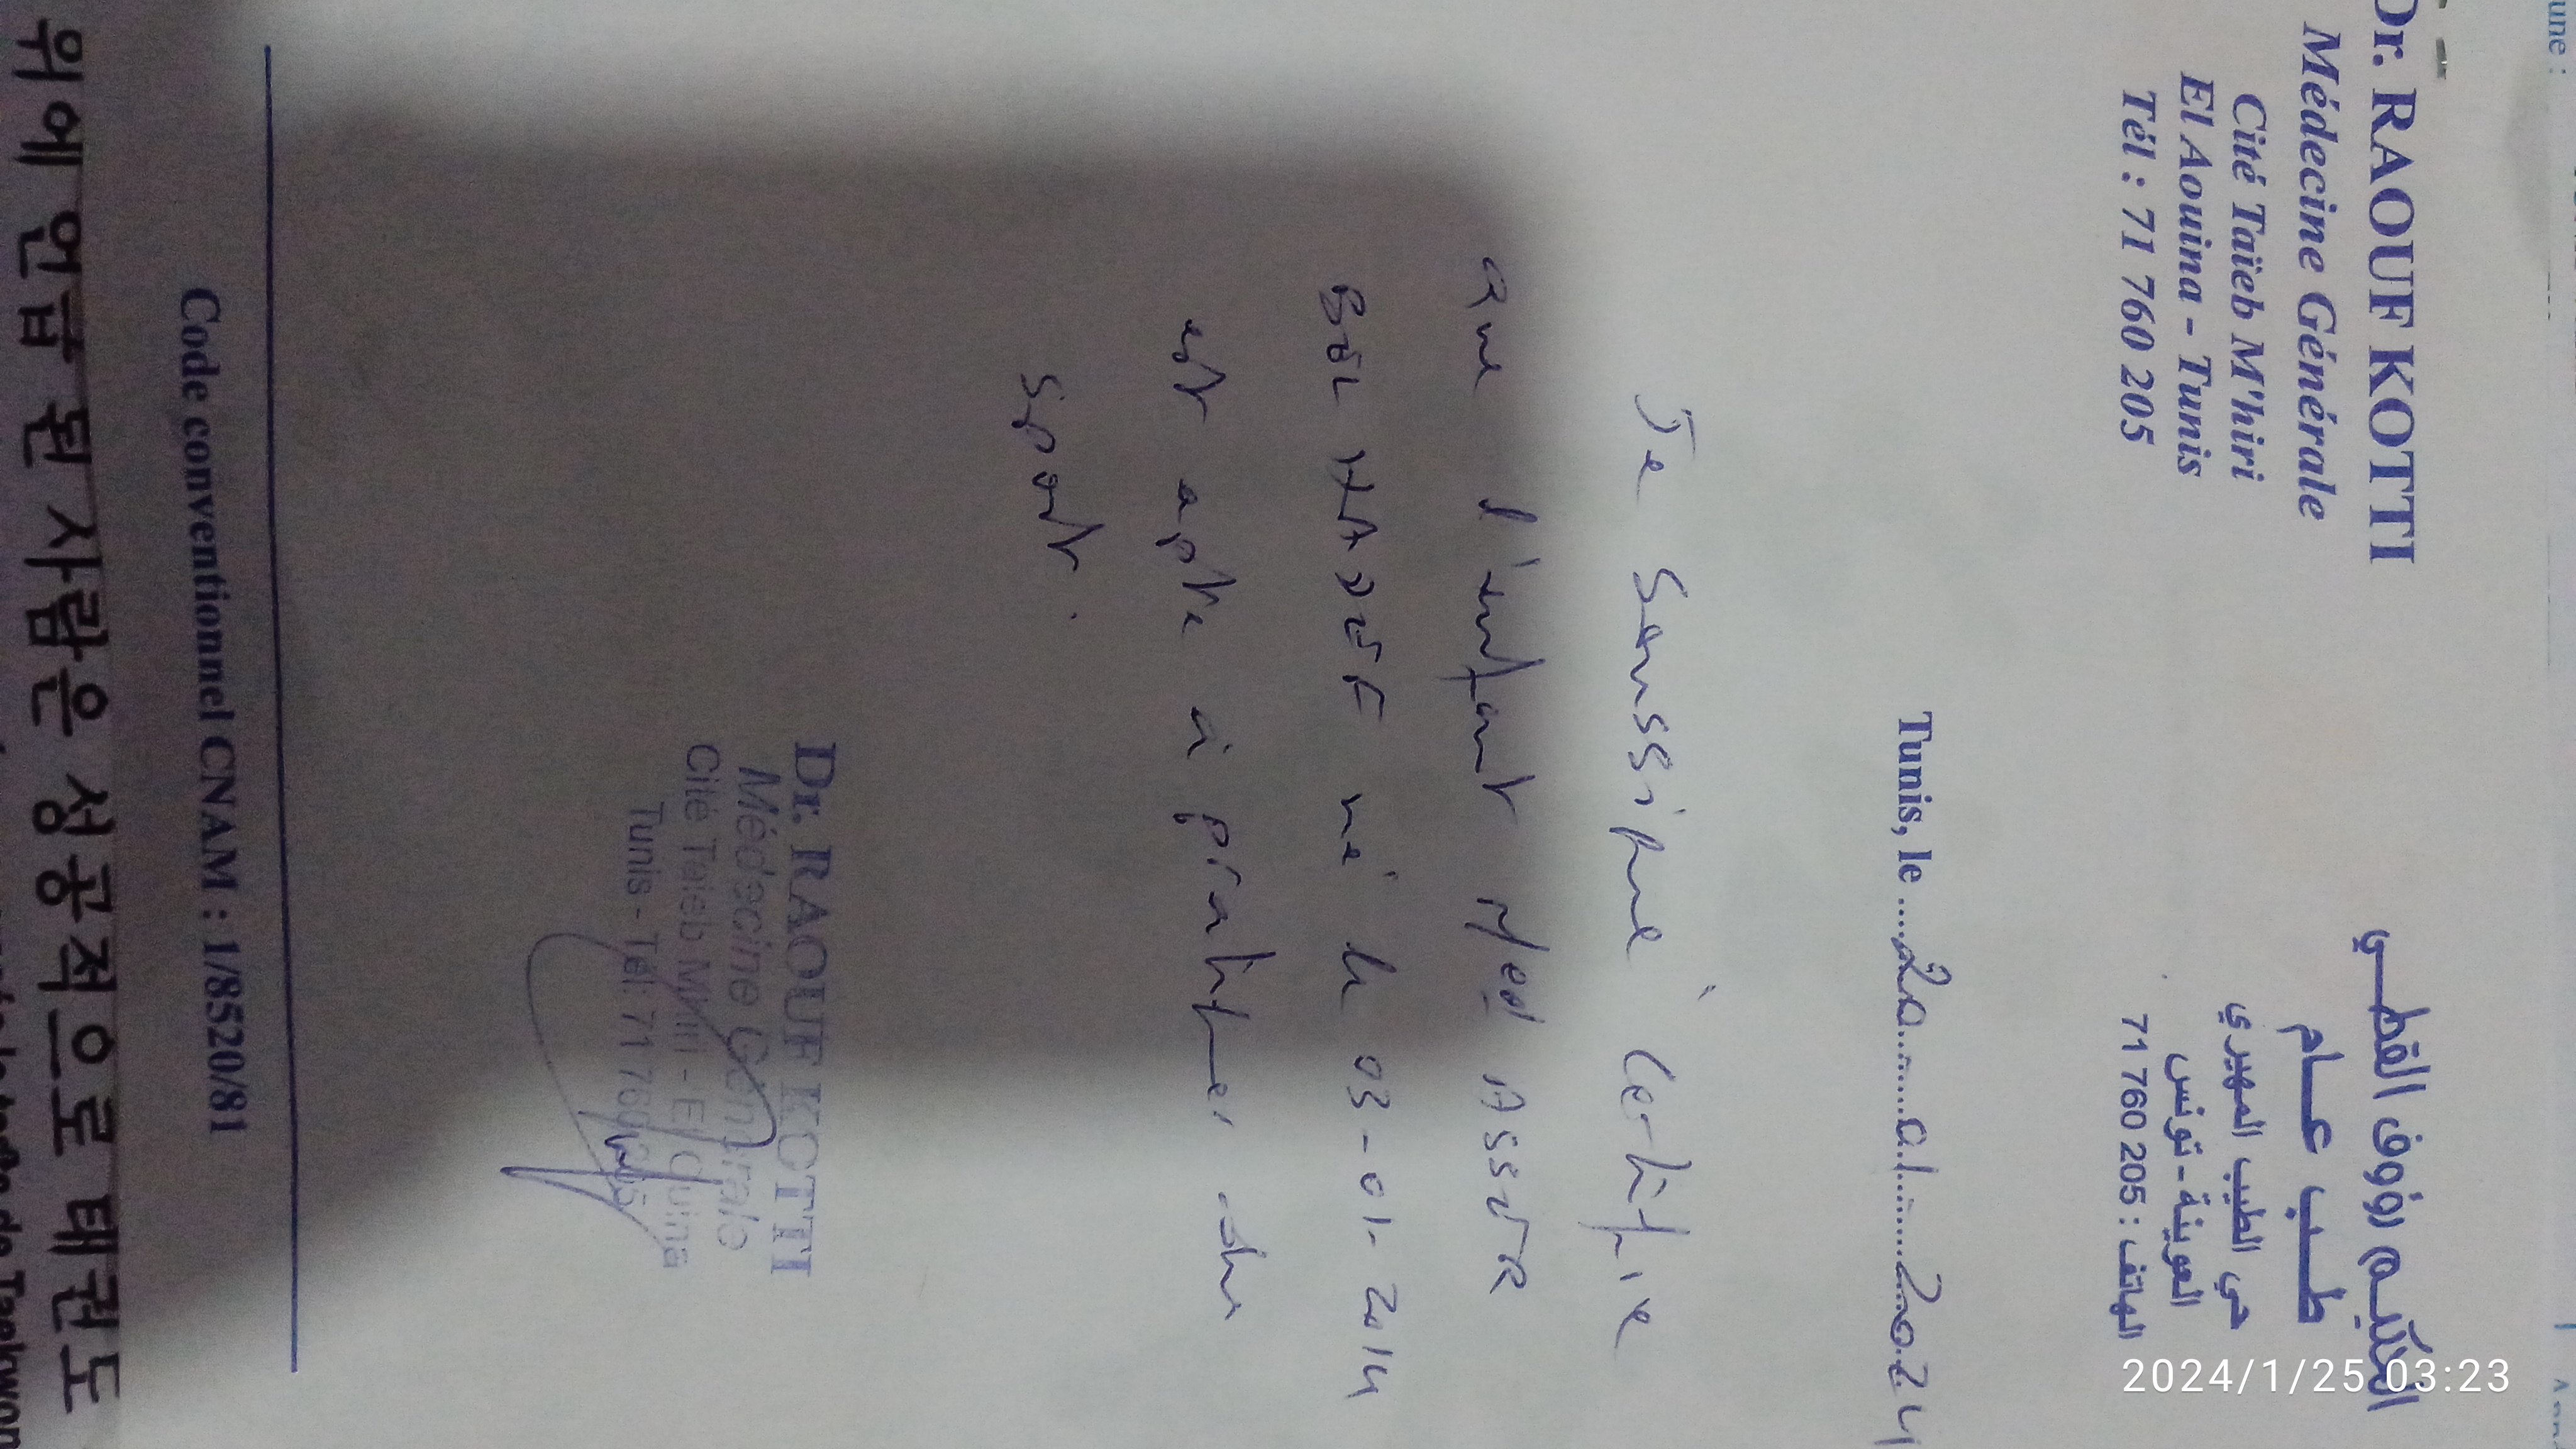 Dr. RAOUF KOTTI
Médecine Générale
Cité Taïeb M'hiri
El Aouina - Tunis
Tél : 71 760 205
الحكيم رؤوف القطي
طب عام
حي الطيب المهيري
العوينة - تونس
الهاتف : 205 760 71
Tunis, le ....20....01....2024
Je soussigné certifie
que l'enfant Med ASSER
BEL HADEF né le 03-01-2014
est apte à pratiquer du
sport.
Dr. RAOUF KOTTI
Médecine Générale
Cité Taieb Mhiri - El Aouina
Tunis - Tél: 71 760 205
Code conventionnel CNAM : 1/8520/81
위에 언급 된 사람은 성공적으로 태권도
2024/1/25 03:23